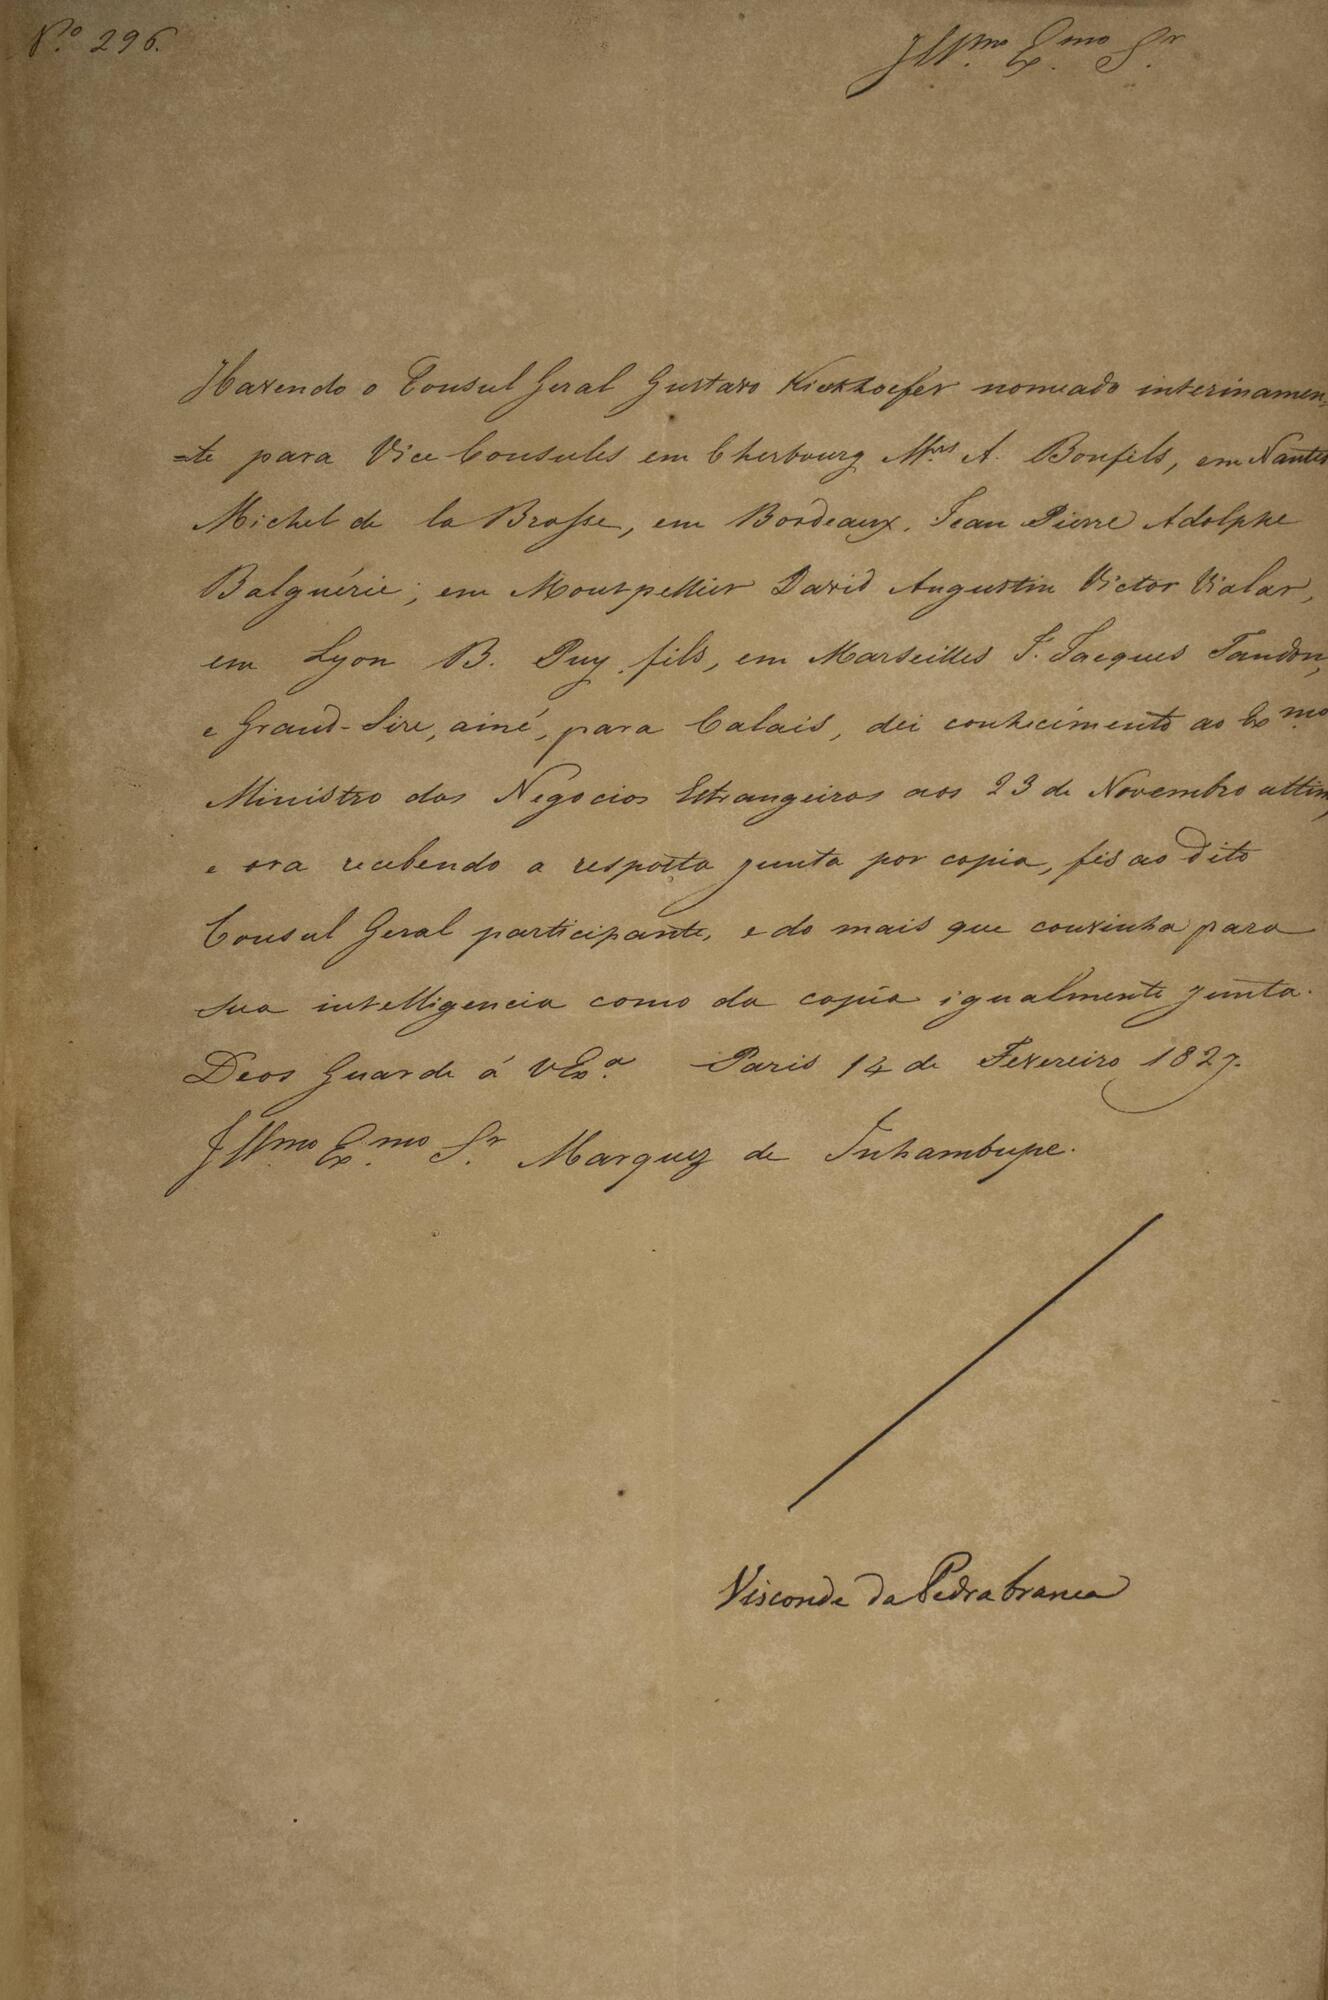 Nº. 296.
Illmo. Exmo. Sr.
Havendo o Consul Geral Gustavo Kieckhoefer nomeado interinamen-
=te para Vice Consules em Cherbourg Mrs. A. Bonfils, em Nantes
Michel de la Brosse, em Bordeaux, Jean Pierre Adolphe
Balguérie; em Montpellier David Augustin Victor Vialar,
em Lyon B. Puy fils, em Marseilles J. Jacques Tandon,
e Grand-Sire, ainé, para Calais, dei conhecimento ao Exmo.
Ministro dos Negocios Estrangeiros aos 23 de Novembro
e ora recebendo a resposta junta por copia, fis ao dito
Consul Geral participante, e do mais que convinha para
sua intelligencia como da copia igualmente junta.
Deos Guarde á VExa. Paris 14 de Fevereiro 1827.
Illmo. Exmo. Sr. Marquez de Inhambupe.
Visconde da Pedra branca